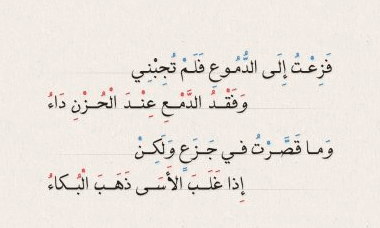 فَزِعْتُ إِلَى الدُّمُوعِ فَلَمْ تُجِبْنِي
وَفَقْدُ الدَّمْعِ عِنْدَ الْحُزْنِ دَاءُ
وَما قَصَّرْتُ في جَزَعٍ وَلَكِنْ
إِذا غَلَبَ الأَسَى ذَهَبَ الْبُكاءُ